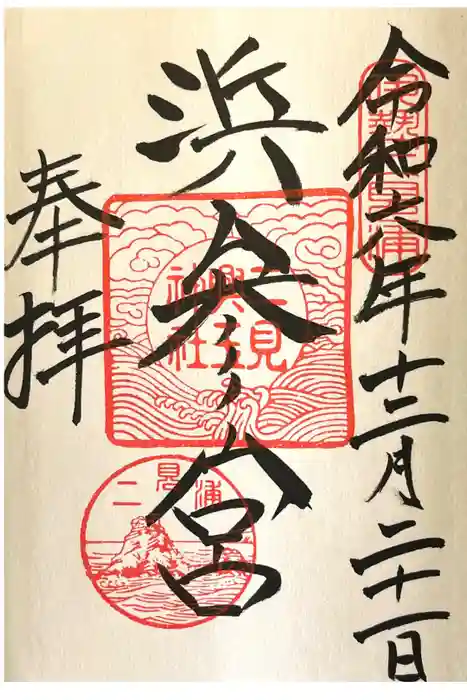 令和六年十二月二十一日
伊勢二見浦
浜参宮
二見興玉神社
二見浦
奉拝